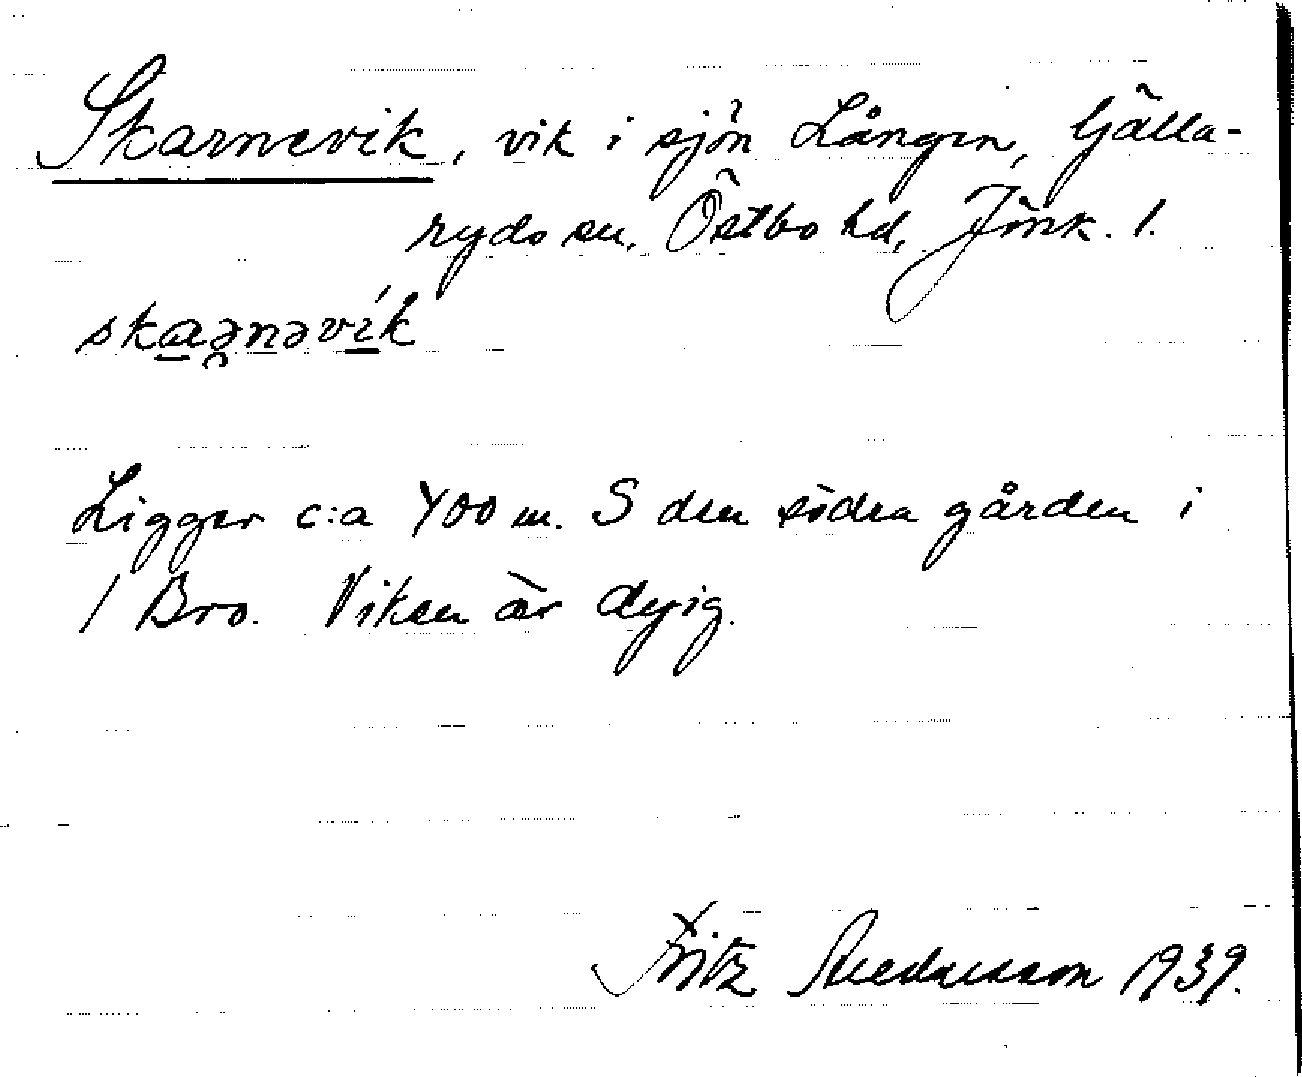 Skarnevik, vik i sjön Lången, Gälla-
ryds sn. Östbo hd, Jönk. l.
skaənəvík
Ligger c:a 400 m. S den södra gården i
/ Bro. Viken är dyig.
Fritz 1939.